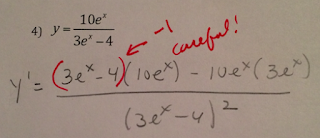 4) y = 10eˣ / 3eˣ − 4
−1
careful!
y' = (3eˣ−4)(10eˣ) − 10eˣ(3eˣ) / (3eˣ−4)²